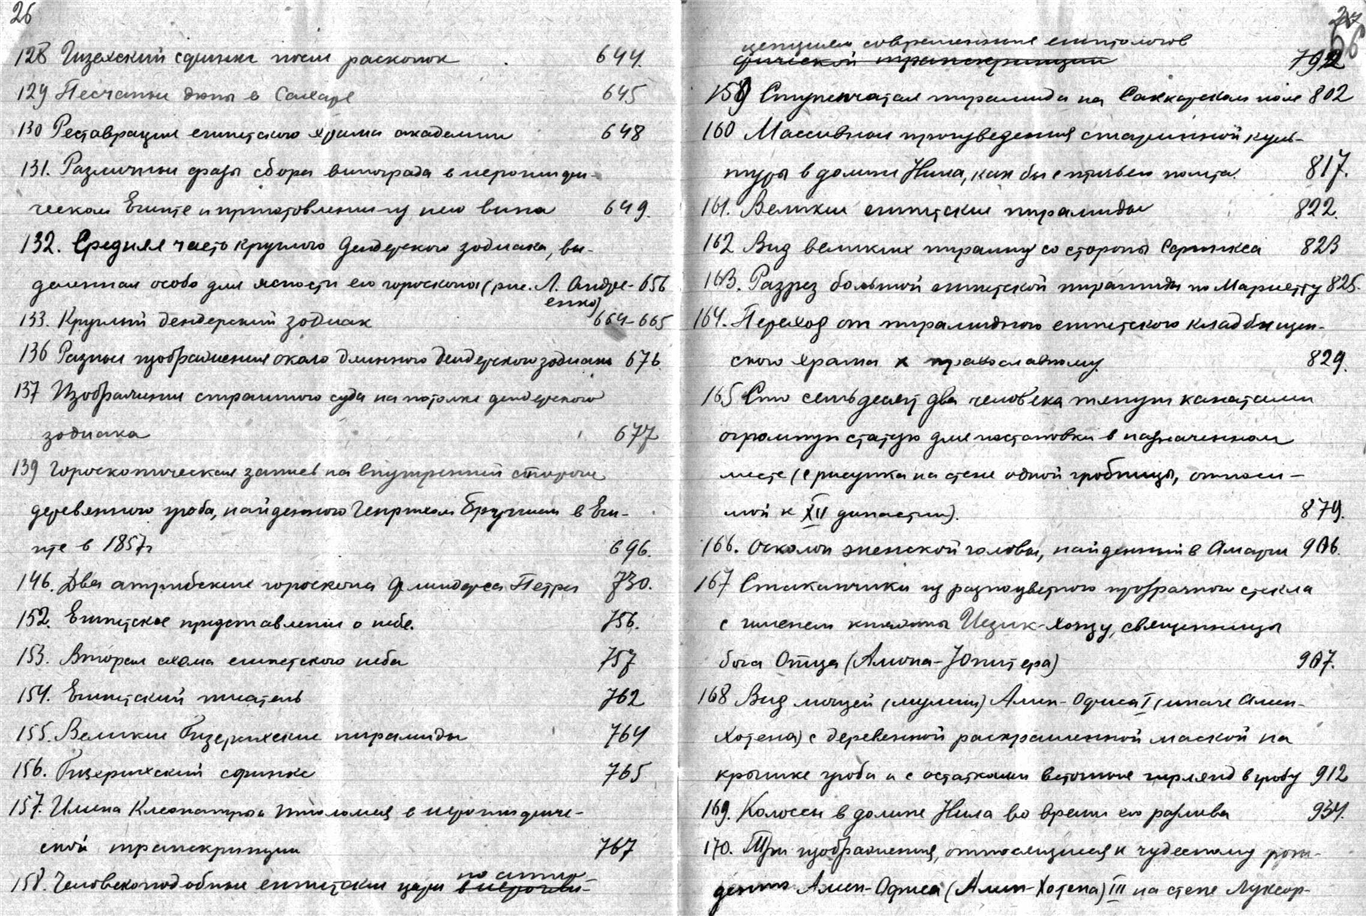 26
128 Гизехский сфинкс после раскопок 644.
129 Песчаные дюны в Сахаре 645
130 Реставрация египетского храма академии 648
131. Различные фазы сбора винограда в иероглифи-
ческом Египте и приготовления из него вина 649.
132. Средняя часть круглого Дендерского зодиака, вы-
деленная особо для ясности его гороскопа (рис. Л. Андре- 656
енко)
133. Круглый дендерский зодиак 664-665
136 Разные изображения около длинного Дендерского зодиака 676.
137 Изображение страшного суда на потолке дендерского
зодиака 677
139 Гороскопическая запись на внутренней стороне
деревянного гроба, найденного Генрихом Бругшем в Еги-
пте в 1857г 696.
146. Два атрибские гороскопа Флиндерса Петри 730.
152. Египетское представление о небе. 756.
153. Вторая схема египетского неба 757
154. Египетский писатель 762
155. Великие Гизерихские пирамиды 764
156. Гизерихский сфинкс 765
157. Имена Клеопатры и Птоломея в иероглифиче-
ской транскрипции 767
158. Человекоподобные египетские цари по антро
в иерогли-
27
26
цепциям современных египтологов
фической транскрипции 792
159 Ступенчатая пирамида на Саккарском поле 802
160 Массивные произведения старинной куль-
туры в долине Нила, как бы с птичьего полета. 817.
161. Великие египетские пирамиды 822.
162 Вид великих пирамид со стороны Сфинкса 823
163. Разрез большой египетской пирамиды по Мариетту 825.
164. Переход от пирамидного египетского кладбищен-
ского храма к православному 829.
165 Сто семьдесят два человека тянут канатами
огромную статую для постановки в назначенном
месте (с рисунка на стене одной гробницы, относи-
мой к XII династии). 879.
166. Осколок женской головы, найденный в Амарне 906.
167 Стаканчики из разноцветного прозрачного стекла
с именем княжны Изик-Хонзу, священницы
бога Отца (Амона-Юпитера) 907.
168 Вид мощей (мумии) Амен-Офиса I (иначе Амен-
Хотепа) с деревенной раскрашенной маской на
крышке гроба и с остатками цветочных гирлянд в гробу 912
169. Колоссы в долине Нила во время его разлива 934.
170. Три изображения, относящиеся к чудесному рож-
дению Амен-Офиса (Амен-Хотепа) III на стене Луксор-